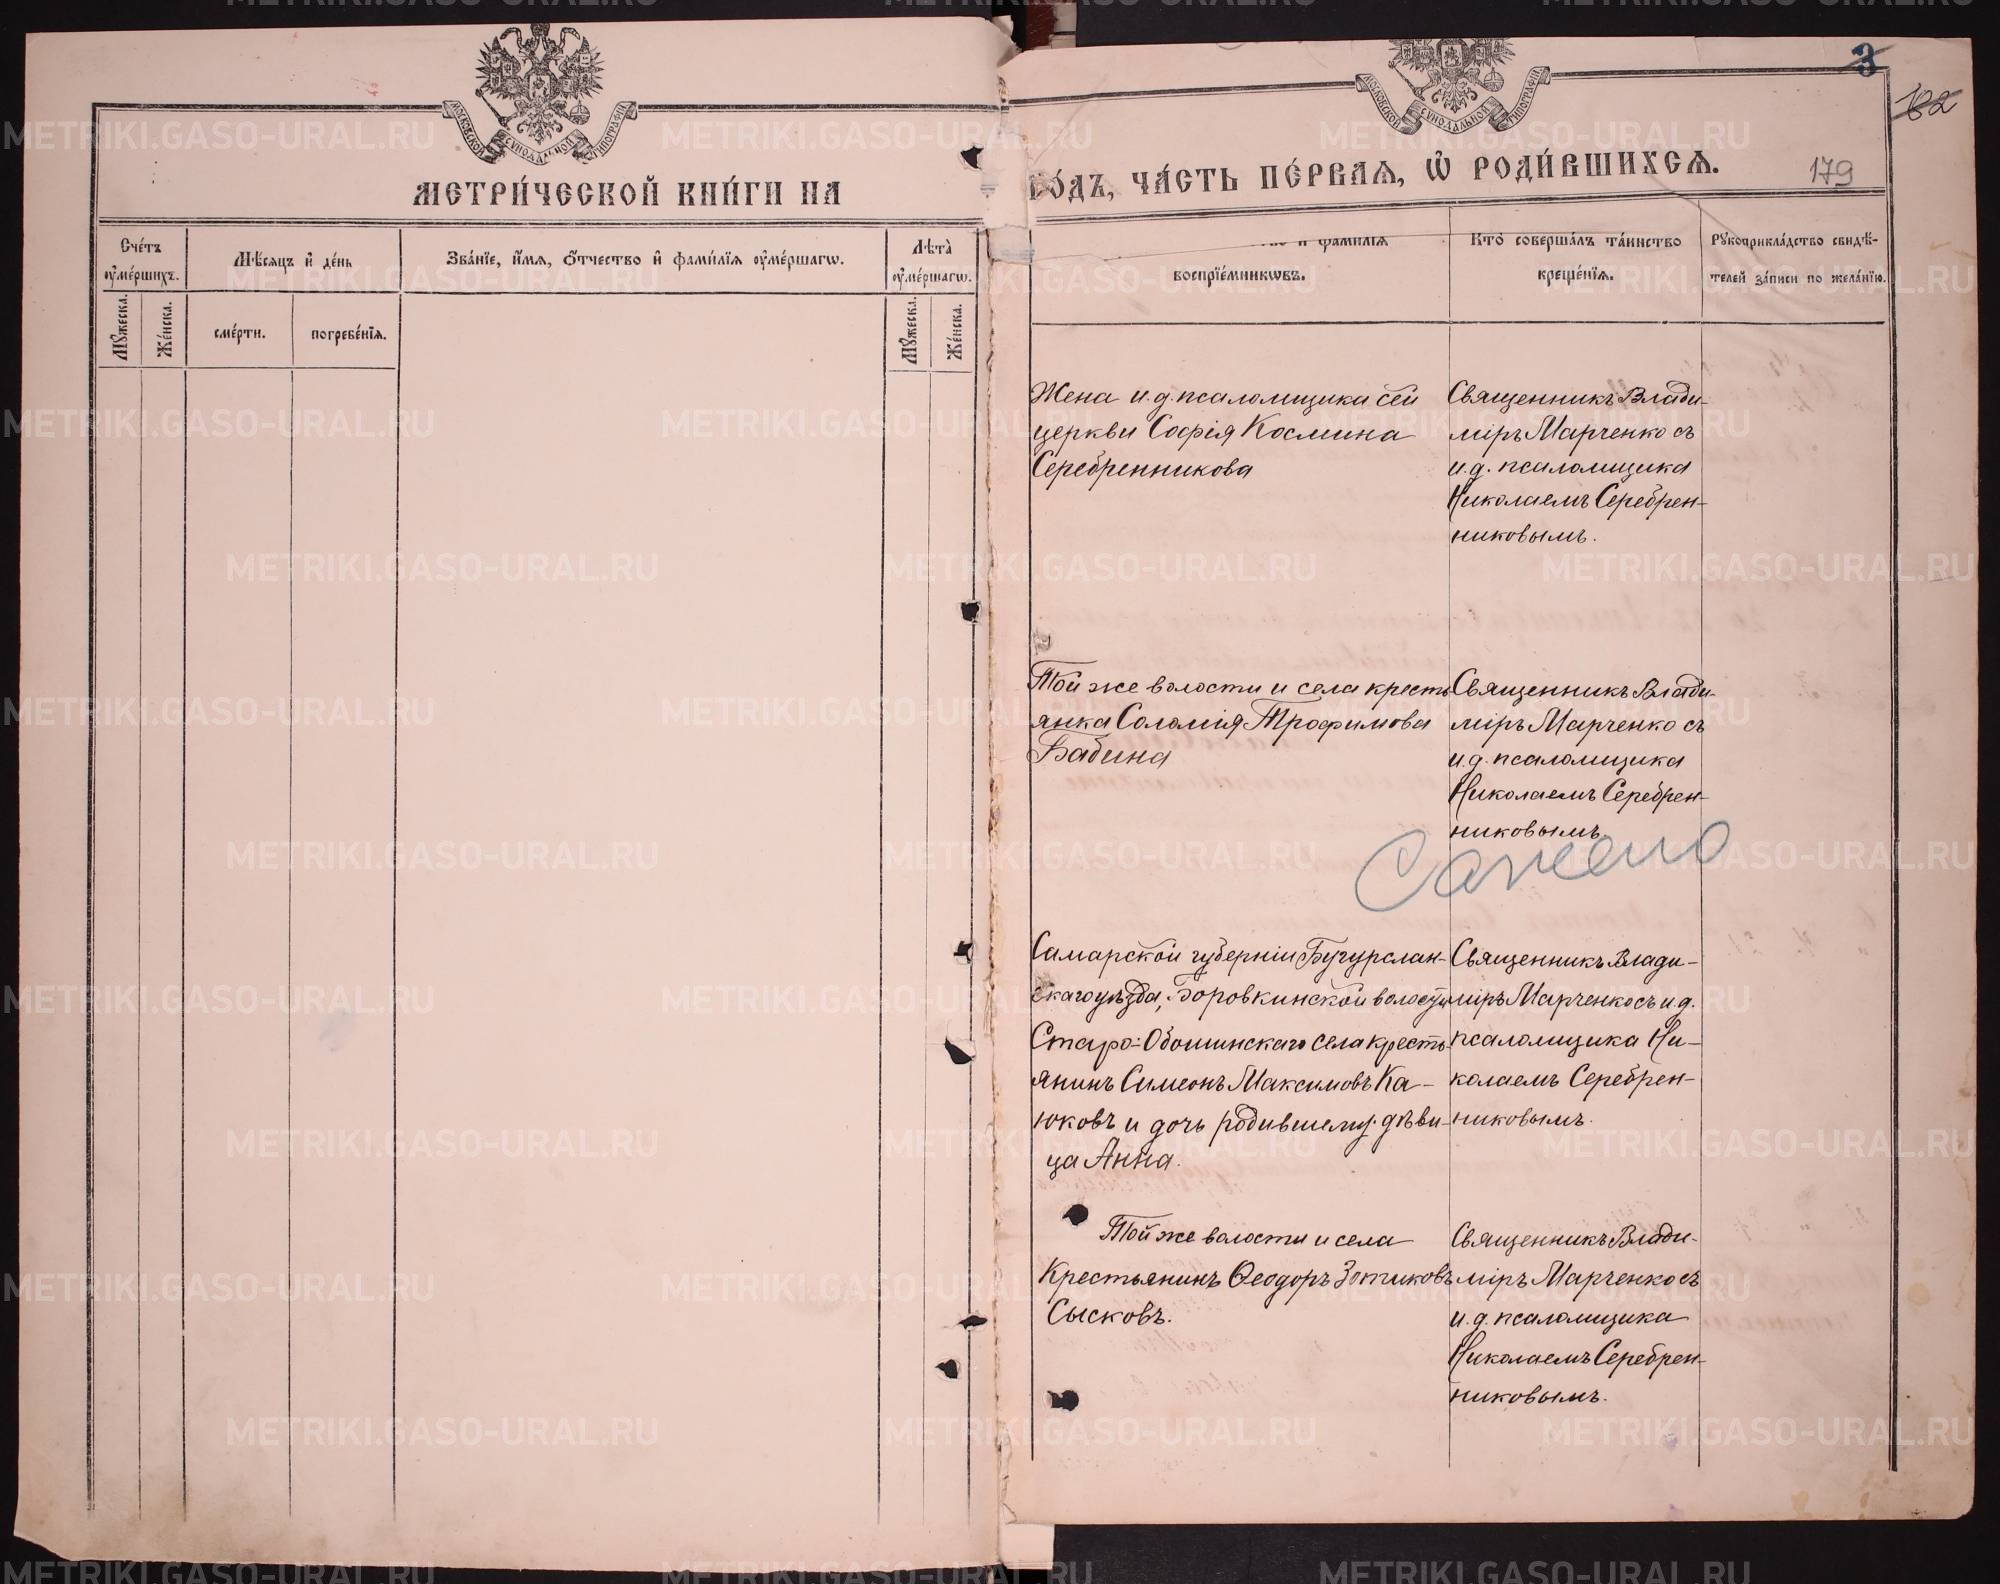 МЕТРИ́ЧЕСКОЙ КНИ́ГИ НА
Сче́тъ ᲂу҆ме́ршихъ.
Мѣ́сяцъ и҆ де́нь
Зва́нїе, и҆́мѧ, ѻ҆́тчество и҆ фами́лїѧ ᲂу҆ме́ршагѡ.
Лѣ́та ᲂу҆ме́ршагѡ.
Мꙋ́жеска.
Же́нска.
сме́рти.
погребе́нїѧ.
Мꙋ́жеска.
Же́нска.
МОСКОВСКОЙ СѴНОДАЛЬНОЙ ТИПОГРАФІИ
МОСКОВСКОЙ СѴНОДАЛЬНОЙ ТИПОГРАФІИ
3
102
179
ГО́ДЪ, ЧА́СТЬ ПЕ́РВАѦ, Ѡ҆ РОДИ́ВШИХСѦ.
и҆ фами́лїѧ
воспрїе́мникѡвъ.
Кто̀ соверша́лъ та́инство
креще́нїѧ.
Рꙋкоприкла́дство свидѣ́-
телей за́писи по жела́нїю.
Жена и.д. псаломщика сей
церкви Софія Космина
Серебренникова
Священникъ Влади-
міръ Марченко съ
и.д. псаломщика
Николаемъ Серебрен-
никовымъ.
Той же волости и села кресть
янка Соломія Трофимова
Бабина
Священникъ Влади-
міръ Марченко съ
и.д. псаломщика
Николаемъ Серебрен-
никовымъ
Самарской губерніи Бугурслан-
скаго уѣзда, Боровкинской волости
Старо-Обошинскаго села кресть-
янинъ Симеонъ Максимовъ Ка-
юковъ и дочь родившему: дѣви-
ца Анна.
Священникъ Влади-
міръ Марченко съ и.д.
псаломщика Ни-
колаемъ Серебрен-
никовымъ.
Той же волости и села
Крестьянинъ Ѳеодоръ Зотиковъ
Сысковъ.
Священникъ Влади-
міръ Марченко съ
и.д. псаломщика
Николаемъ Серебрен-
никовымъ.
METRIKI.GASO-URAL.RU